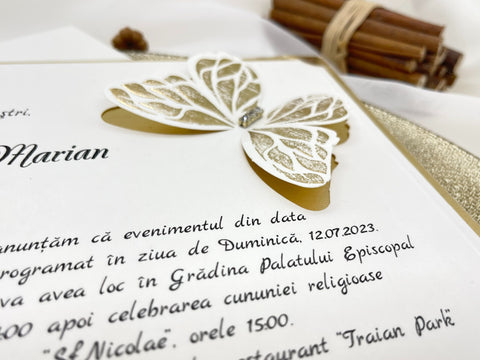 ștri,
Marian
anunțăm că evenimentul din data
programat în ziua de Duminică, 12.07.2023.
va avea loc în Grădina Palatului Episcopal
:00 apoi celebrarea cununiei religioase
"Sf. Nicolae", orele 15:00.
restaurant "Traian Park"